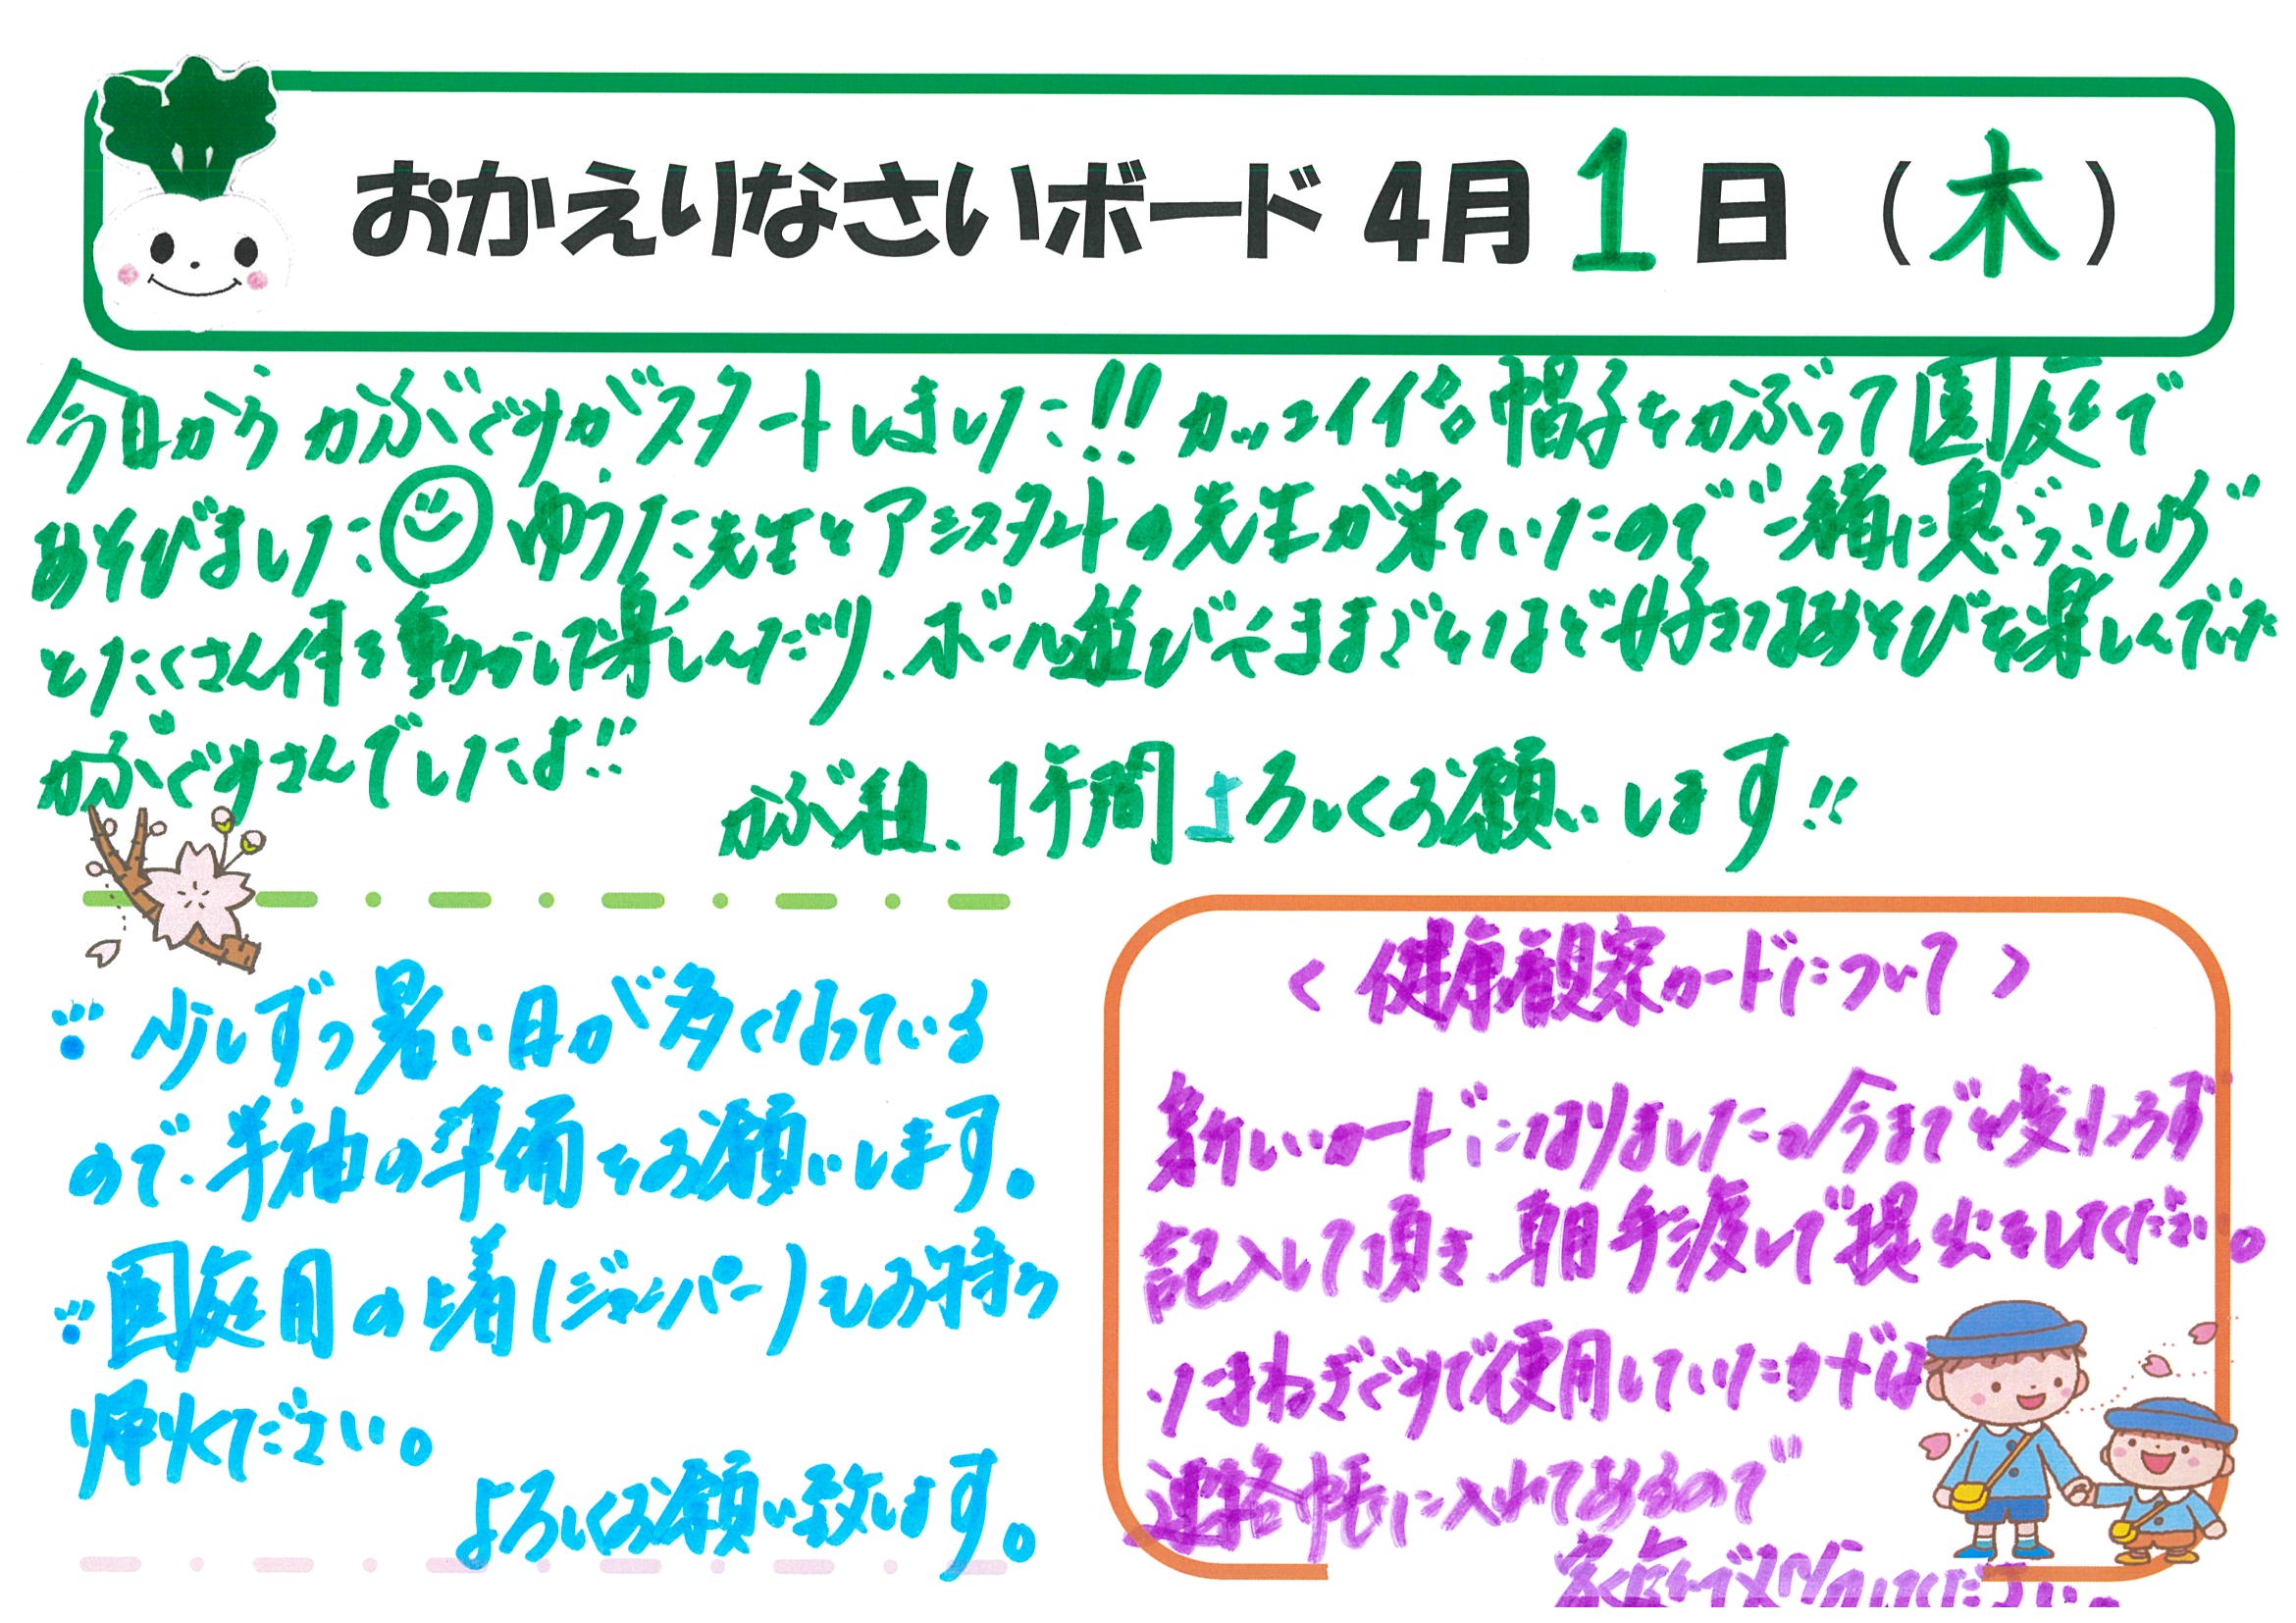 おかえりなさいボード 4月1日（木）
今日から かぶぐみがスタートしました!! カッコイイ色の帽子をかぶって園庭で
あそびました ゆうた先生とアシスタントの先生が来ていたので一緒に
とたくさん体を動かして楽しんだり、ボール遊びやままごとなど好きなあそびを楽しんでいた
かぶぐみさんでしたよ!!
かぶ組、1年間よろしくお願いします!!
少しずつ暑い日が多くなっている
ので、半袖の準備をお願いします。
園庭用の上着(ジャンパー)もお持ち
帰り下ださい。
よろしくお願い致します。
<健康観察カードについて>
新しいカードになりました。今までと変わらず
記入して頂き、朝手渡しで提出をしてください。
たまねぎぐみで使用していたカードは
連絡帳に入れてあるので
家庭で
ください。